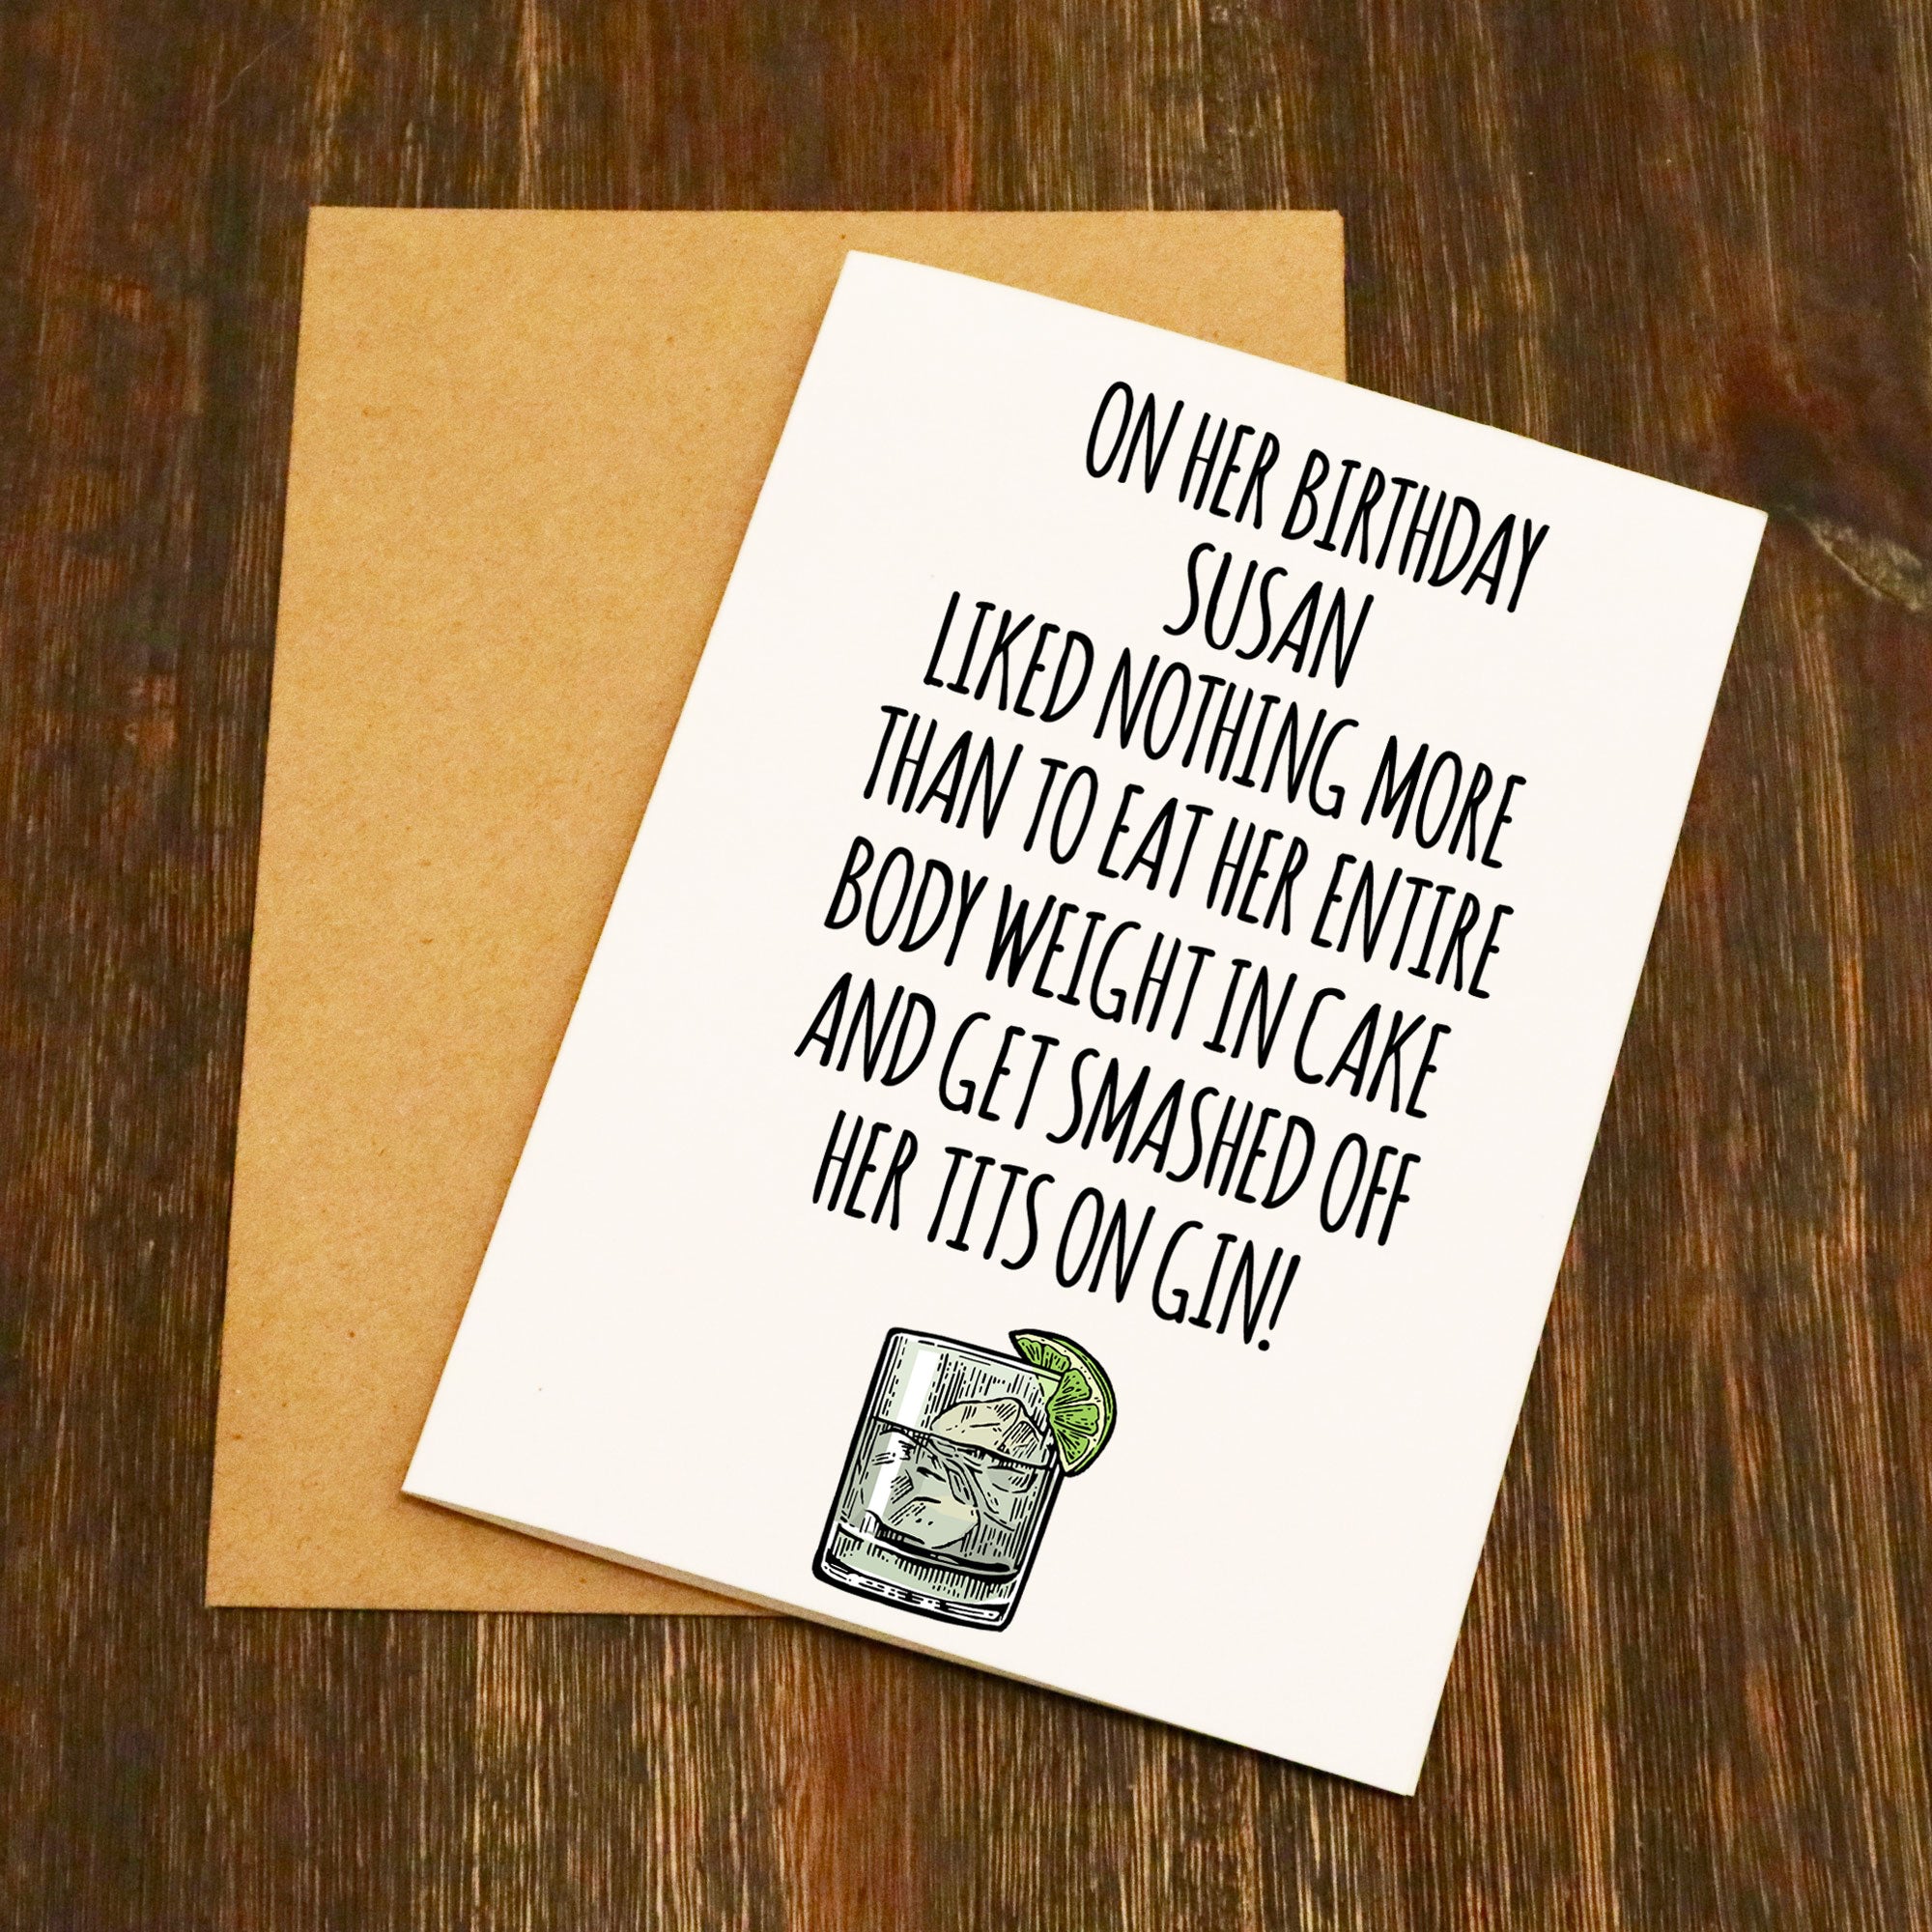 ON HER BIRTHDAY
SUSAN
LIKED NOTHING MORE
THAN TO EAT HER ENTIRE
BODY WEIGHT IN CAKE
AND GET SMASHED OFF
HER TITS ON GIN!